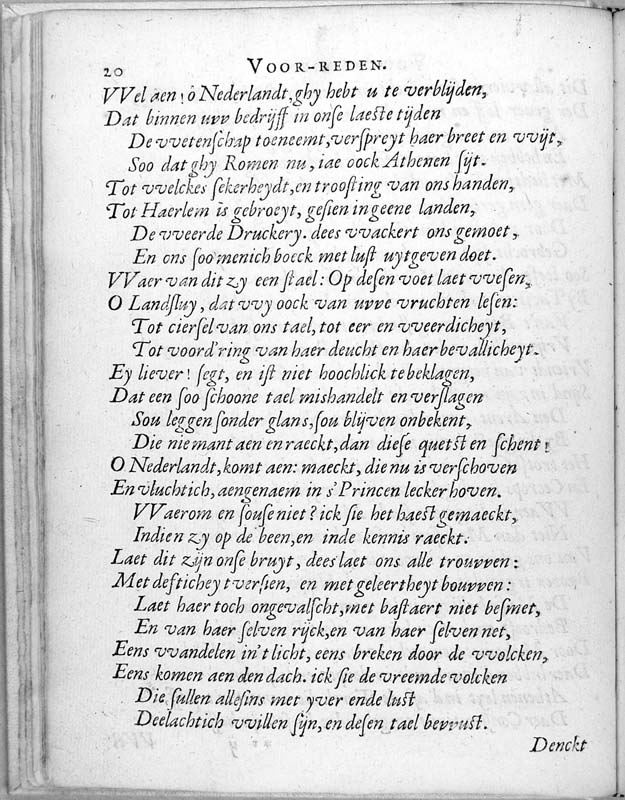 20 VOOR-REDEN.
VVel aen! ô Nederlandt, ghy hebt u te verblijden,
Dat binnen uvv bedrijff in onse laeste tijden
De vvetenschap toeneemt, verspreyt haer breet en vvijt,
Soo dat ghy Romen nu, iae oock Athenen sijt.
Tot vvelckes sekerheydt, en troosting van ons handen,
Tot Haerlem is gebroeyt, gesien in geene landen,
De vveerde Druckery. dees vvackert ons gemoet,
En ons soo menich boeck met lust uytgeven doet.
VVaer van dit zy een stael: Op desen voet laet vvesen,
O Landsluy, dat vvy oock van uvve vruchten lesen:
Tot ciersel van ons tael, tot eer en vveerdicheyt,
Tot voord'ring van haer deucht en haer bevallicheyt.
Ey liever! segt, en ist niet hoochlick te beklagen,
Dat een soo schoone tael mishandelt en verslagen
Sou leggen sonder glans, sou blijven onbekent,
Die niemant aen en raeckt, dan diese quetst en schent!
O Nederlandt, komt aen: maeckt, die nu is verschoven
En vluchtich, aengenaem in s'Princen lecker hoven.
VVaerom en souse niet? ick sie het haest gemaeckt,
Indien zy op de been, en inde kennis raeckt.
Laet dit zijn onse bruyt, dees laet ons alle trouvven:
Met defticheyt versien, en met geleertheyt bouvven:
Laet haer toch ongevalscht, met bastaert niet besmet,
En van haer selven rijck, en van haer selven net,
Eens vvandelen in't licht, eens breken door de vvolcken,
Eens komen aen den dach. ick sie de vreemde volcken
Die sullen allesins met yver ende lust
Deelachtich vvillen sijn, en desen tael bevvust.
Denckt